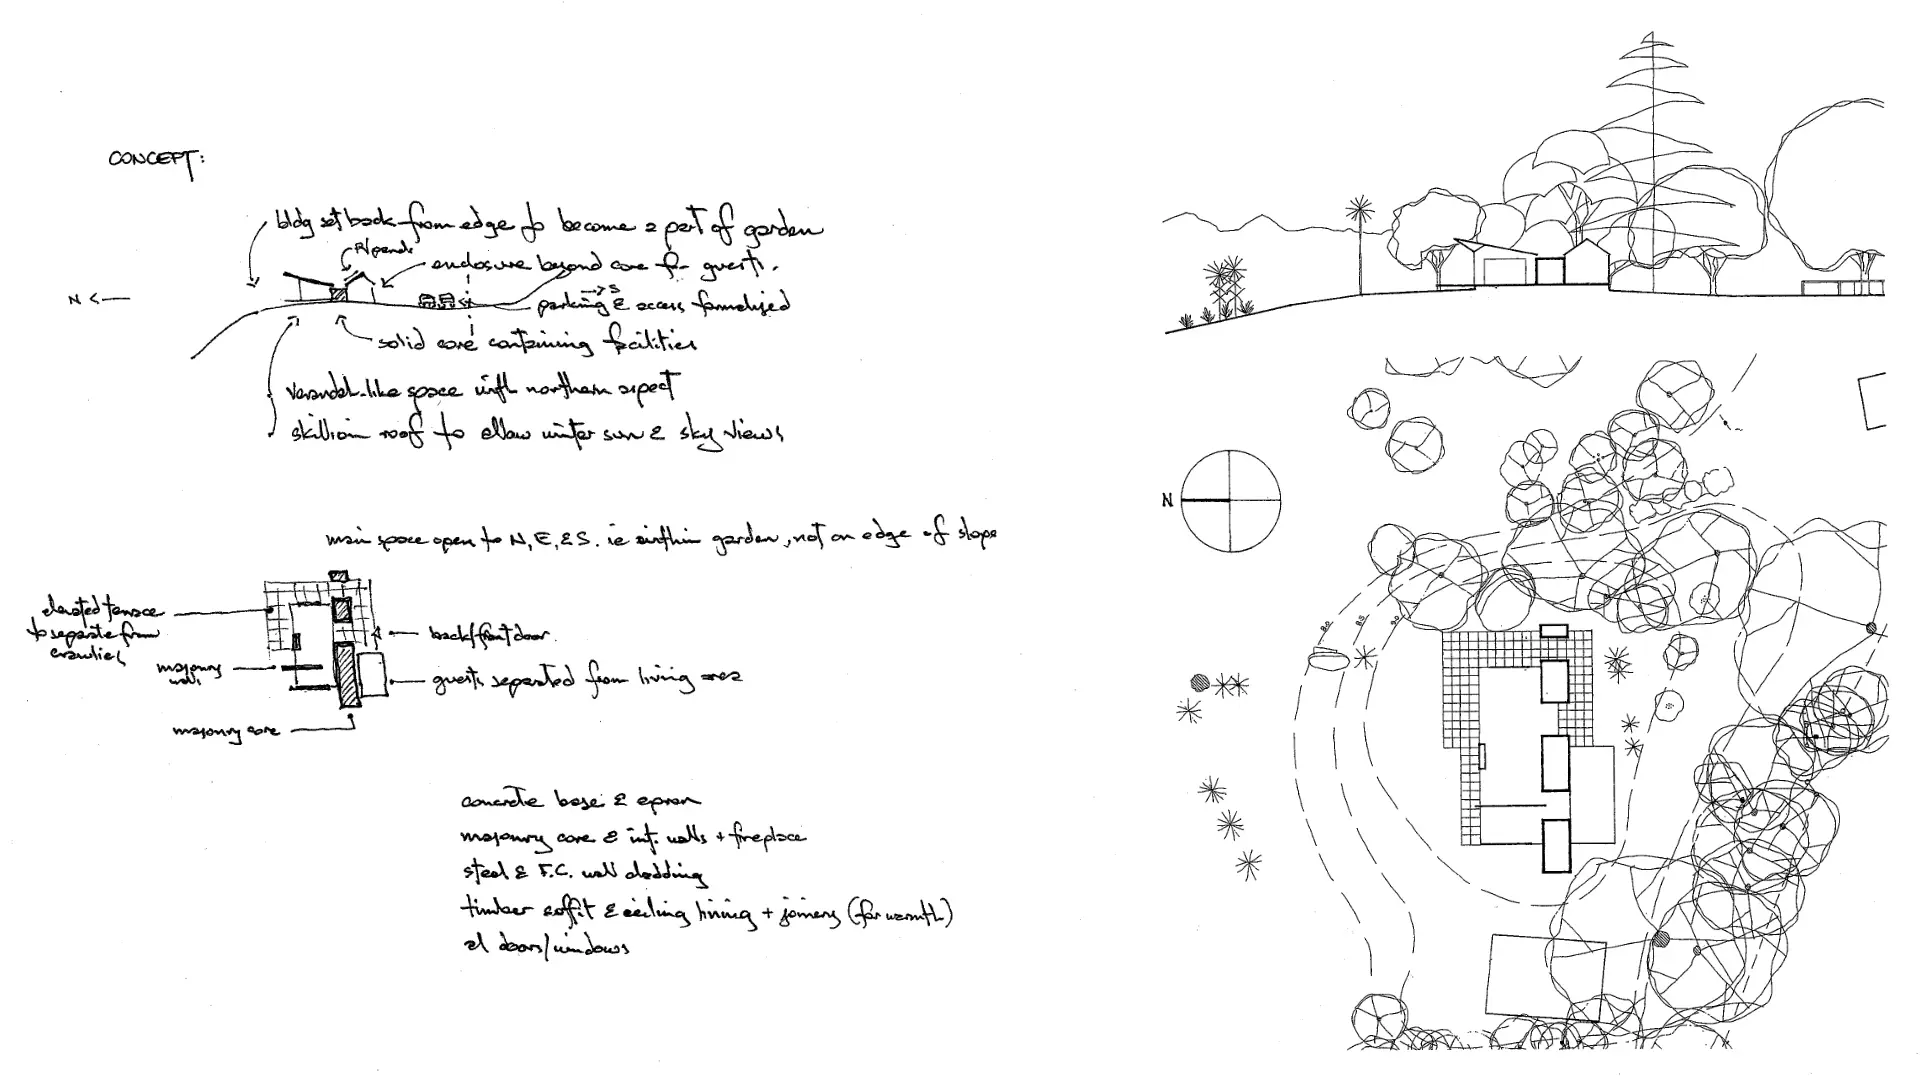 CONCEPT:
bldg set back from edge to become a part of garden
enclosure beyond core for guests.
N <—
→ S
parking & access formalised
solid core containing facilities
verandah-like space with northern aspect
skillion roof to allow winter sun & sky views
main space open to N, E, & S. ie within garden, not on edge of slope
elevated terrace
to separate from
crawlies
back/front door
masonry
walls
guests separated from living area
masonry core
concrete base & apron
masonry core & int. walls + fireplace
steel & F.C. wall cladding
timber soffit & ceiling lining + joinery (for warmth)
al doors/windows
N